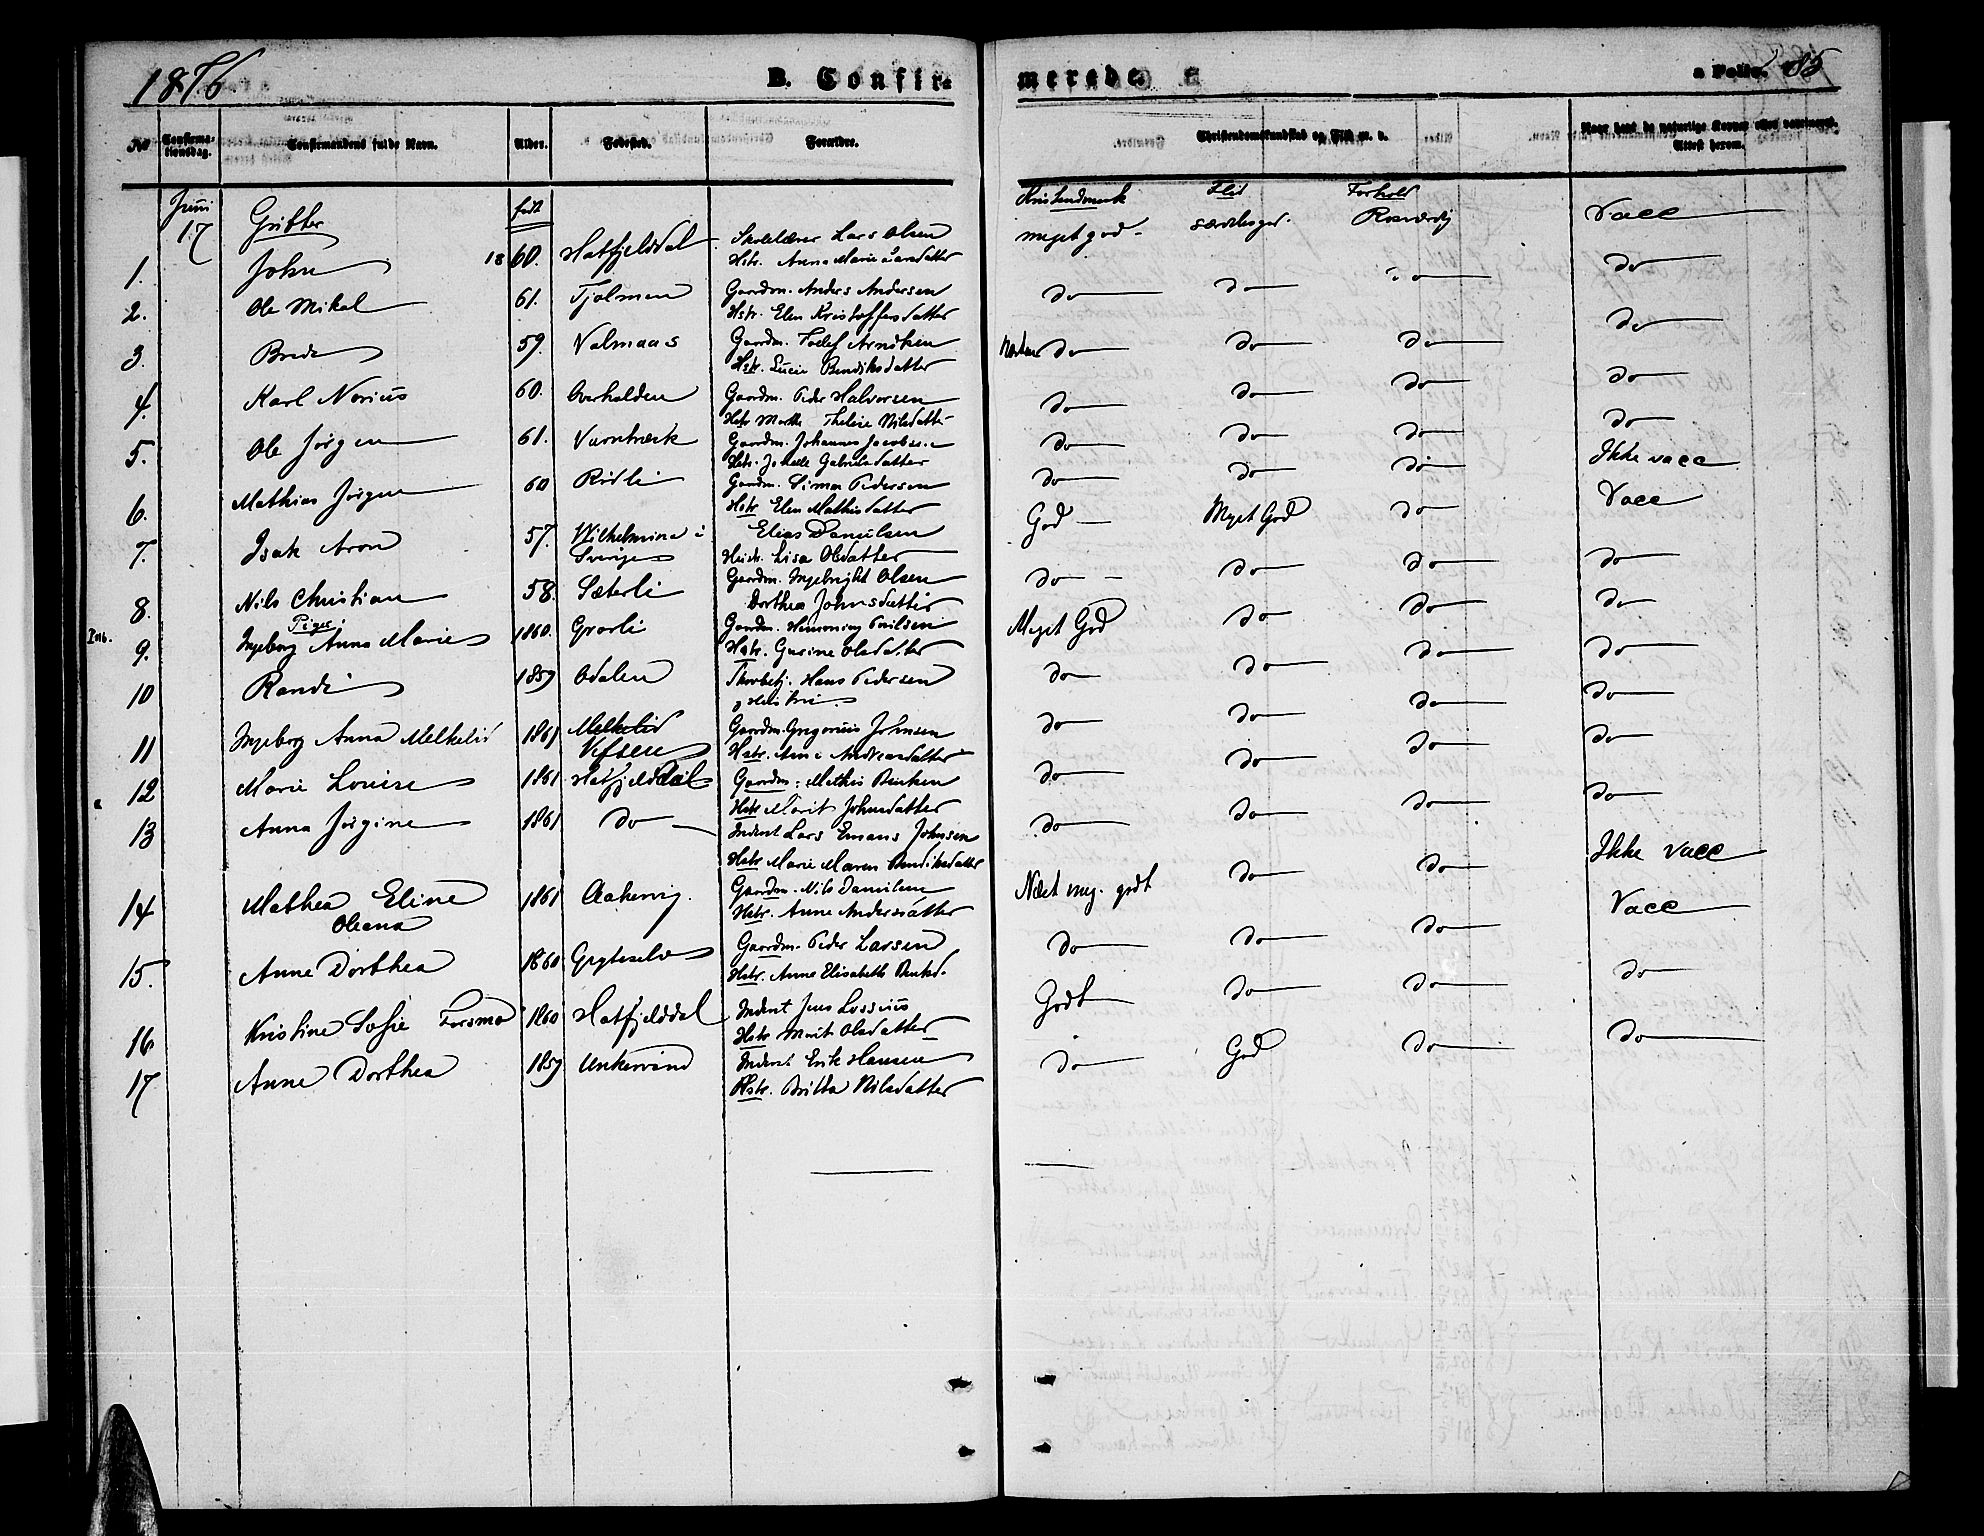 1876 B. Confir- merede. a Folio. 85
No Confirma-tionsdag. Confirmandens fulde Navn. Alder. Fødested. Forældre. Christendomskundskab og Flid m. v. Naar havt de naturlige Kopper eller vaccineret. Attest herom.
Juni 17 Gutter født Kristendomsk Flid Forhold
1. John 1860. Hatfjelddal Skolelærer Lars Olsen meget god særdeles god Rosværdig Vacc
Hstr. Anna Marie Larsdatter
2. Ole Mikal 61. Tjolmen Gaardm. Anders Andersen do do do do
Hstr. Elen Kristoffersdatter
3. Brede 59. Valmaas Gaardm. Tollef Arntsen næsten do do do do
Hstr. Lucie Bendiksdatter
4. Karl Norius 60. Overhalden Gaardm. Peder Halvorsen do do do do
Hstr Marthe Nilsdatter
5. Ole Jörgen 61. Varntræsk Gaardm. Johannes Jacobsen do do do do
Hstr. Gabrielsdatter
6. Mathias Jörgen 60 Rödli Gaardm. Simon Pedersen do do do Ikke vacc
Hstr Elen Mathisdatter
7. Isak Aron 57. Wilhelmina i Sverige Elias Danielsen God Meget God do Vacc
Hustr. Lisa Olsdatter
8. Nils Christian 58. Sæterli Gaardm. Ingebright Olsen do do do do
Dorthea Johnsdatter
Piger
9. Ingeborg Anna Marie 1860. Grorli Gaardm. Hemming Meget God do do do
Hstr. Gurine Olsdatter
10 Randi 1859 Odalen Hans Pedersen do do do do
og Hustru
11 Ingeborg Anna Melkelid 1861 Melkelid Vefsen Gaardm. Gregorius Johnsen do do do do
Hstr. Ane Andreasdatter
12 Marie Lovise 1861 Hatfjelddal Gaardm. Mathis do do do do
Hstr Marit Johnsdatter
13 Anna Jörgine 1861 do Inderst Lars Emaus Johnsen do do do do
Hstr Marie Maren Bendiksdatter
14 Mathea Eline Oleana 1861 Aakervig. Gaardm. Nils Danielsen Næst meg. godt do do Ikke vacc
Hstr. Anne Andersdatter
15. Anne Dorthea 1860 Gryteselv Gaardm. Peder Larsen do do do Vacc
Hstr. Anne Elisabeth
16 Kristine Sofie Forsmo 1860 Hatfjelddal Inderst Jens Lossius Godt do do do
Hstr Marit Olsdatter
17 Anne Dorthea 1859 Unkervand Inderst Erik Hansen do God do do
Hstr. Britta Nilsdatter